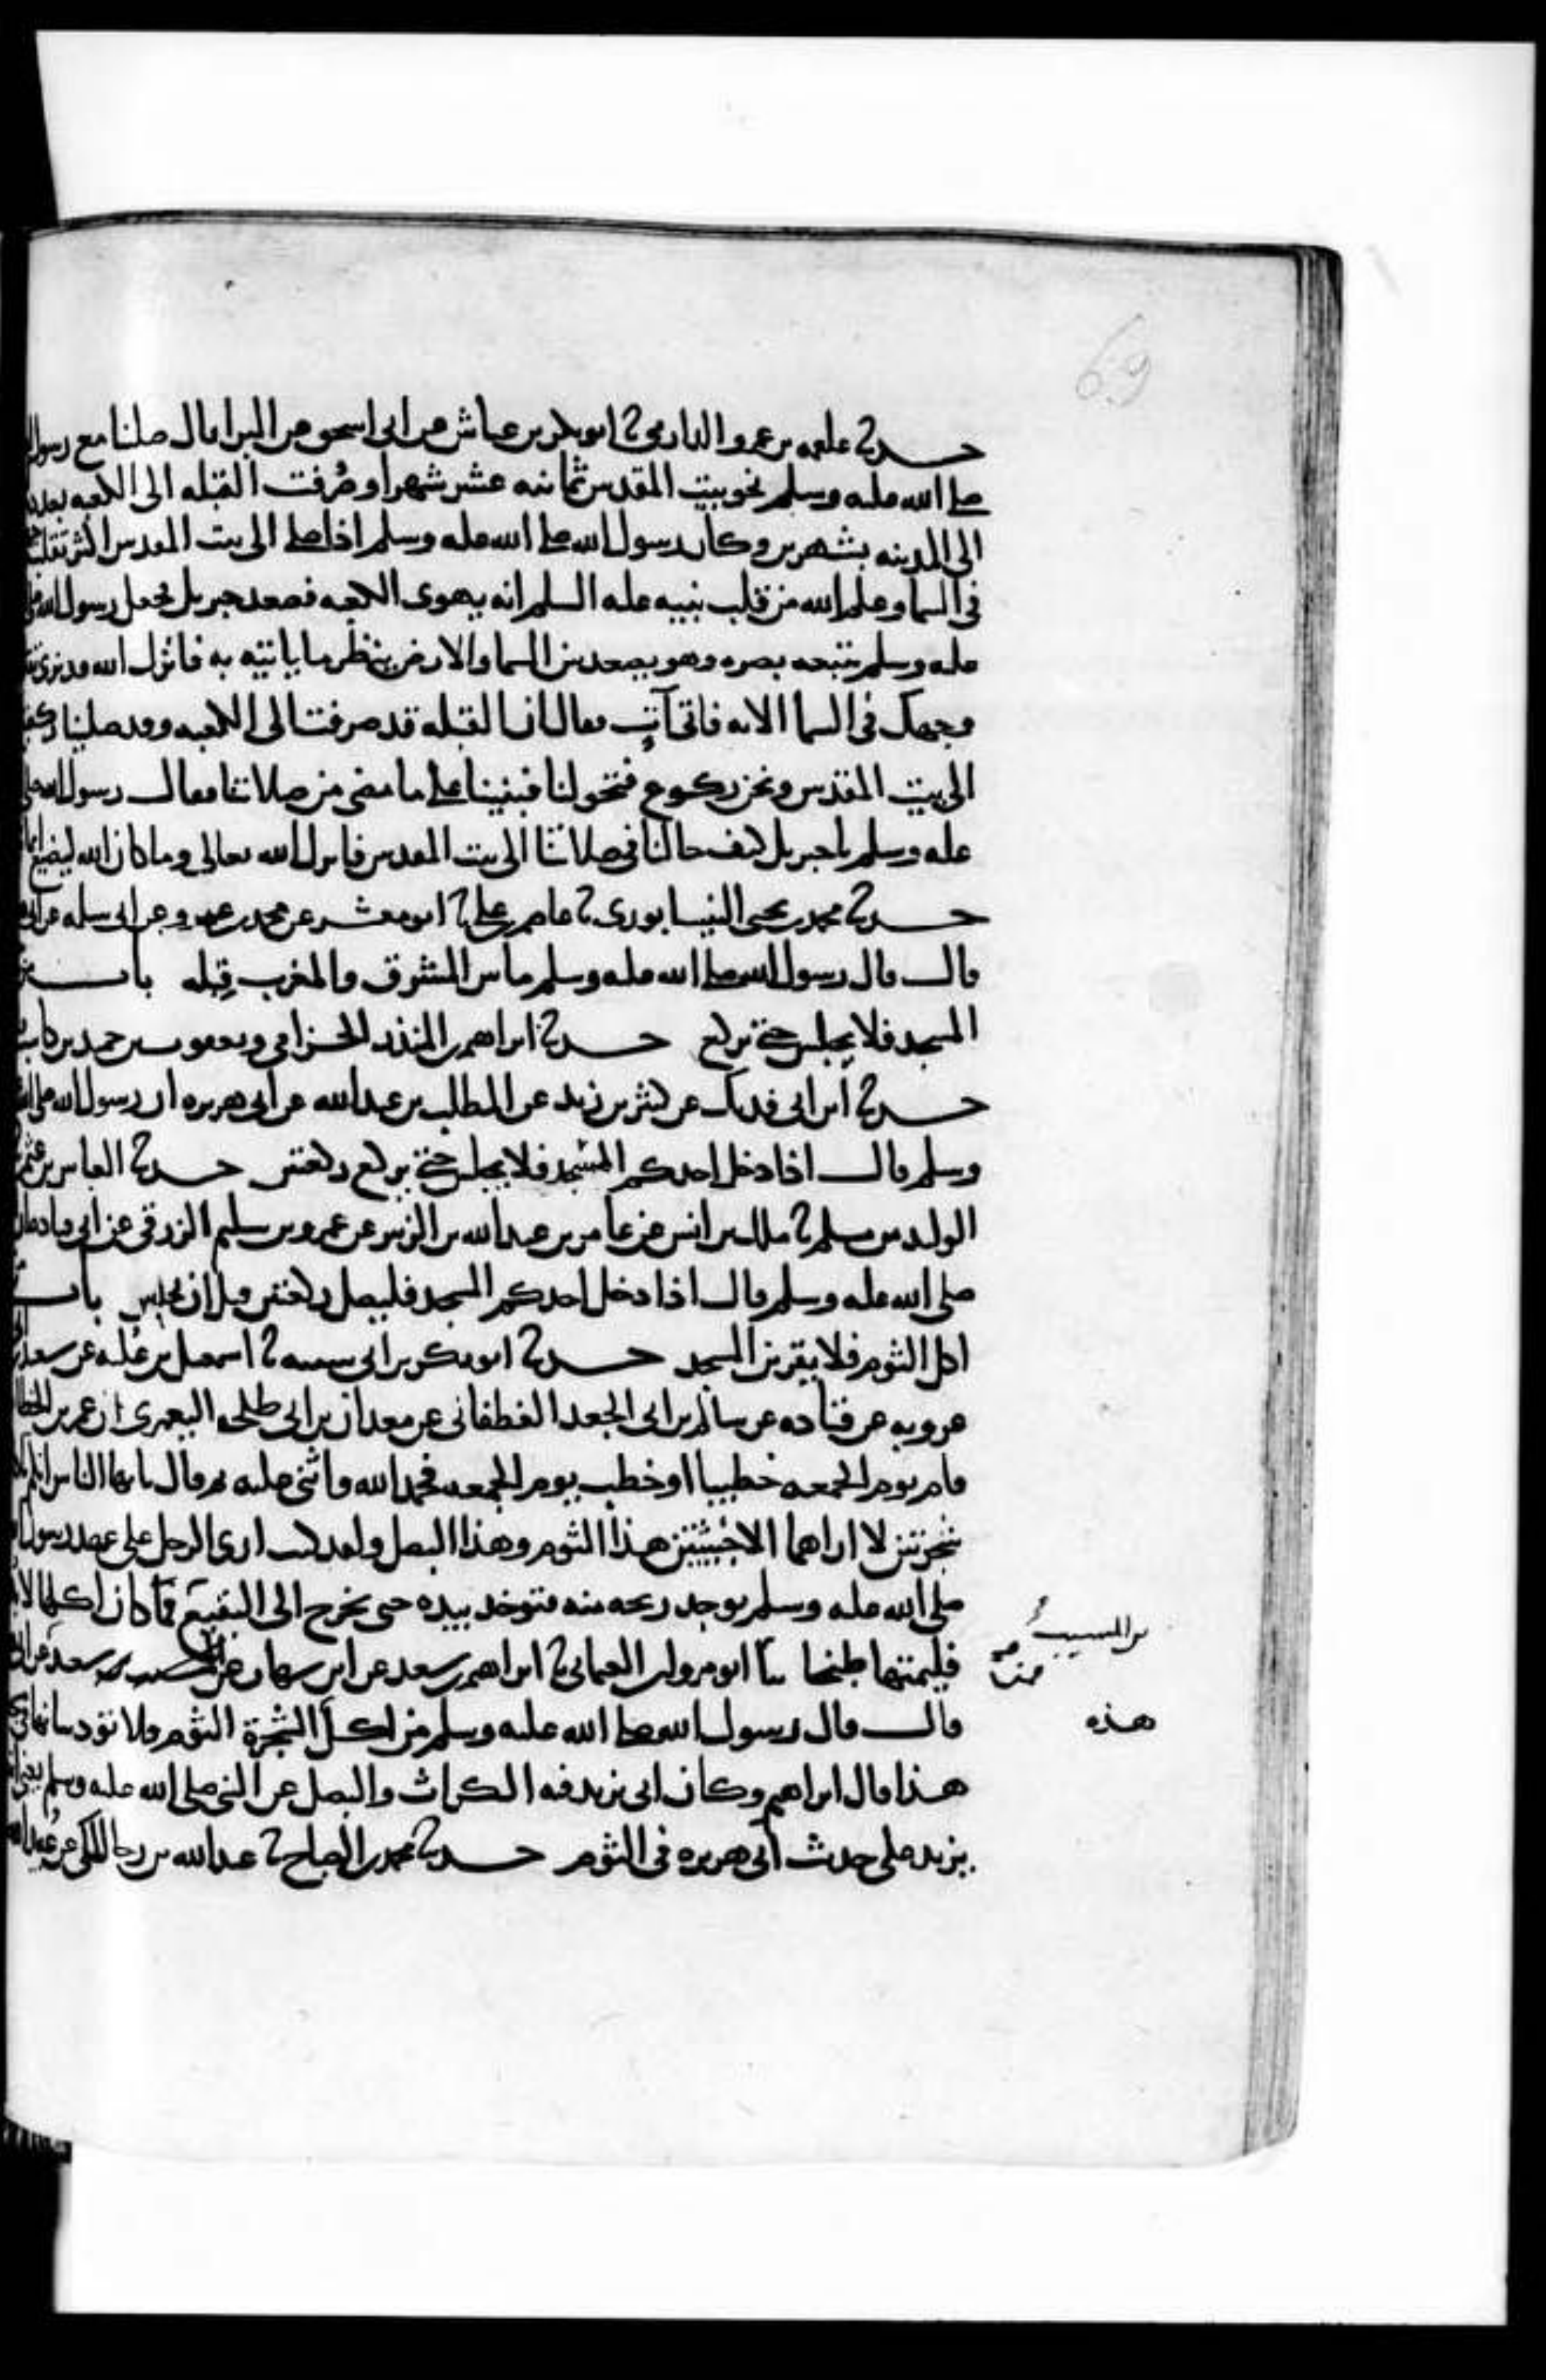 69
حدثنا علقمه بن عمرو الدارمي ثنا ابو بكر بن عياش عن ابي اسحق عن البرا قال صلينا مع رسول
صلى الله عليه وسلم نحو بيت المقدس ثمانيه عشر شهرا وصُرفت القبله الى الكعبه بعد
الى المدينه بشهرين وكان رسول الله صلى الله عليه وسلم اذا صلى الى بيت المقدس اكثر تقلب
في السما وعلم الله من قلب نبيه عليه السلم انه يهوى الكعبه فصعد جبريل فجعل رسول الله
عليه وسلم يتبعه بصره وهو يصعد بين السما والارض ينظر ما ياتيه به فانزل الله قد نرى
وجهك في السما الايه فاتى آتٍ فقال ان القبله قد صرفت الى الكعبه وقد صلينا
الى بيت المقدس ونحن ركوع فتحولنا فبنينا على ما مضى من صلاتنا فقال رسول الله
عليه وسلم يا جبريل كيف حالنا في صلاتنا الى بيت المقدس فانزل الله تعالى وما كان الله ليضيع
حدثنا محمد بن يحيى النيسابوري ثنا عاصم بن علي ثنا ابو معشر عن محمد بن عمرو عن ابي سلمه عن ابي
قال قال رسول الله صلى الله عليه وسلم ما بين المشرق والمغرب قِبله باب
المسجد فلا يجلس حتى يركع حدثنا ابراهيم بن المنذر الحزامي ويعقوب بن حميد بن كاسب
حدثنا ابن ابي فديك عن كثير بن زيد عن المطلب بن عبدالله عن ابي هريره ان رسول الله صلى
وسلم قال اذا دخل احدكم المسجد فلا يجلس حتى يركع ركعتين حدثنا العباس بن
الوليد بن مسلم ثنا ملك بن انس عن عامر بن عبدالله بن الزبير عن عمرو بن سليم الزرقي عن ابي قتاده
صلى الله عليه وسلم قال اذا دخل احدكم المسجد فليصل ركعتين قبل ان يجلس باب
اكل الثوم فلا يقربن المسجد حدثنا ابو بكر بن ابي شيبه ثنا اسمعيل بن عُليه عن سعيد
عروبه عن قتاده عن سالم بن ابي الجعد الغطفاني عن معدان بن ابي طلحه اليعمري ان عمر بن الخطاب
قام يوم الجمعه خطيبا او خطب يوم الجمعه فحمد الله واثنى عليه ثم قال يا يها الناس انكم
شجرتين لا اراهما الا خبيثتين هذا الثوم وهذا البصل ولقد كنت ارى الرجل على عهد رسول
صلى الله عليه وسلم يوجد ريحه منه فتوخذ بيده حتى يخرج الى البقيع فمن كان اكلها لا
فليمتها طبخا ثنا ابو مروان العثماني ثنا ابراهيم بن سعد عن ابن شهاب عن سعيد عن ابي
بن المسيب
قال قال رسول الله صلى الله عليه وسلم من اكل الشجرة الثوم فلا تؤذينا بها في
هذه
هذا قال ابراهيم وكان ابي يزيد فيه الكراث والبصل عن النبي صلى الله عليه وسلم يعني
يزيد على حديث ابي هريره في الثوم حدثنا محمد بن الصباح ثنا عبدالله بن رجا المكي عن عُبيد الله